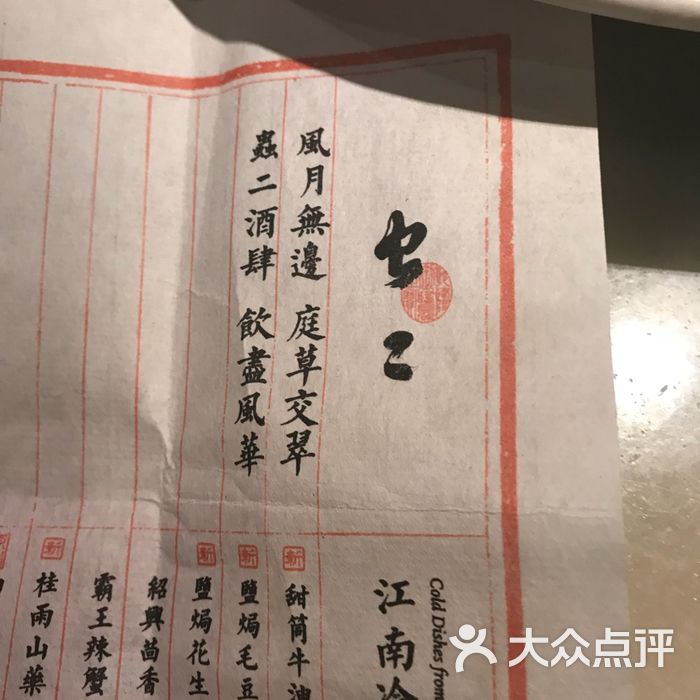 虫二
風月無邊 庭草交翠
蟲二酒肆 飲盡風華
Cold Dishes from
江南冷
新 甜筒牛油
新 鹽焗毛豆
新 鹽焗花生
紹興茴香
霸王辣蟹
新 桂雨山藥
大众点评